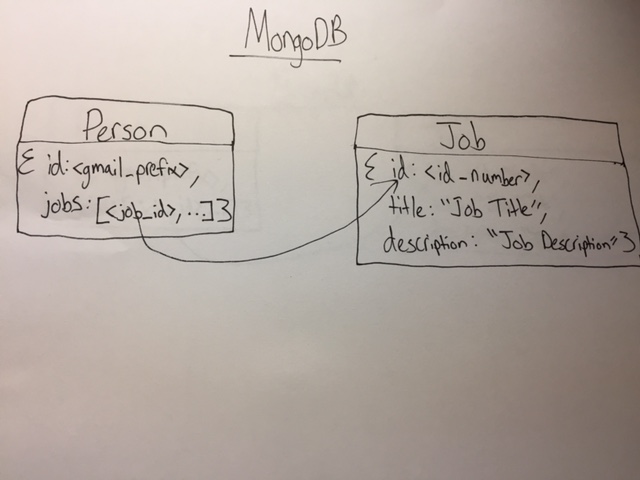 MongoDB
Person
{ id: <gmail_prefix>,
jobs: [<job_id>, ...] }
Job
{ id: <id_number>,
title: "Job Title",
description: "Job Description" }